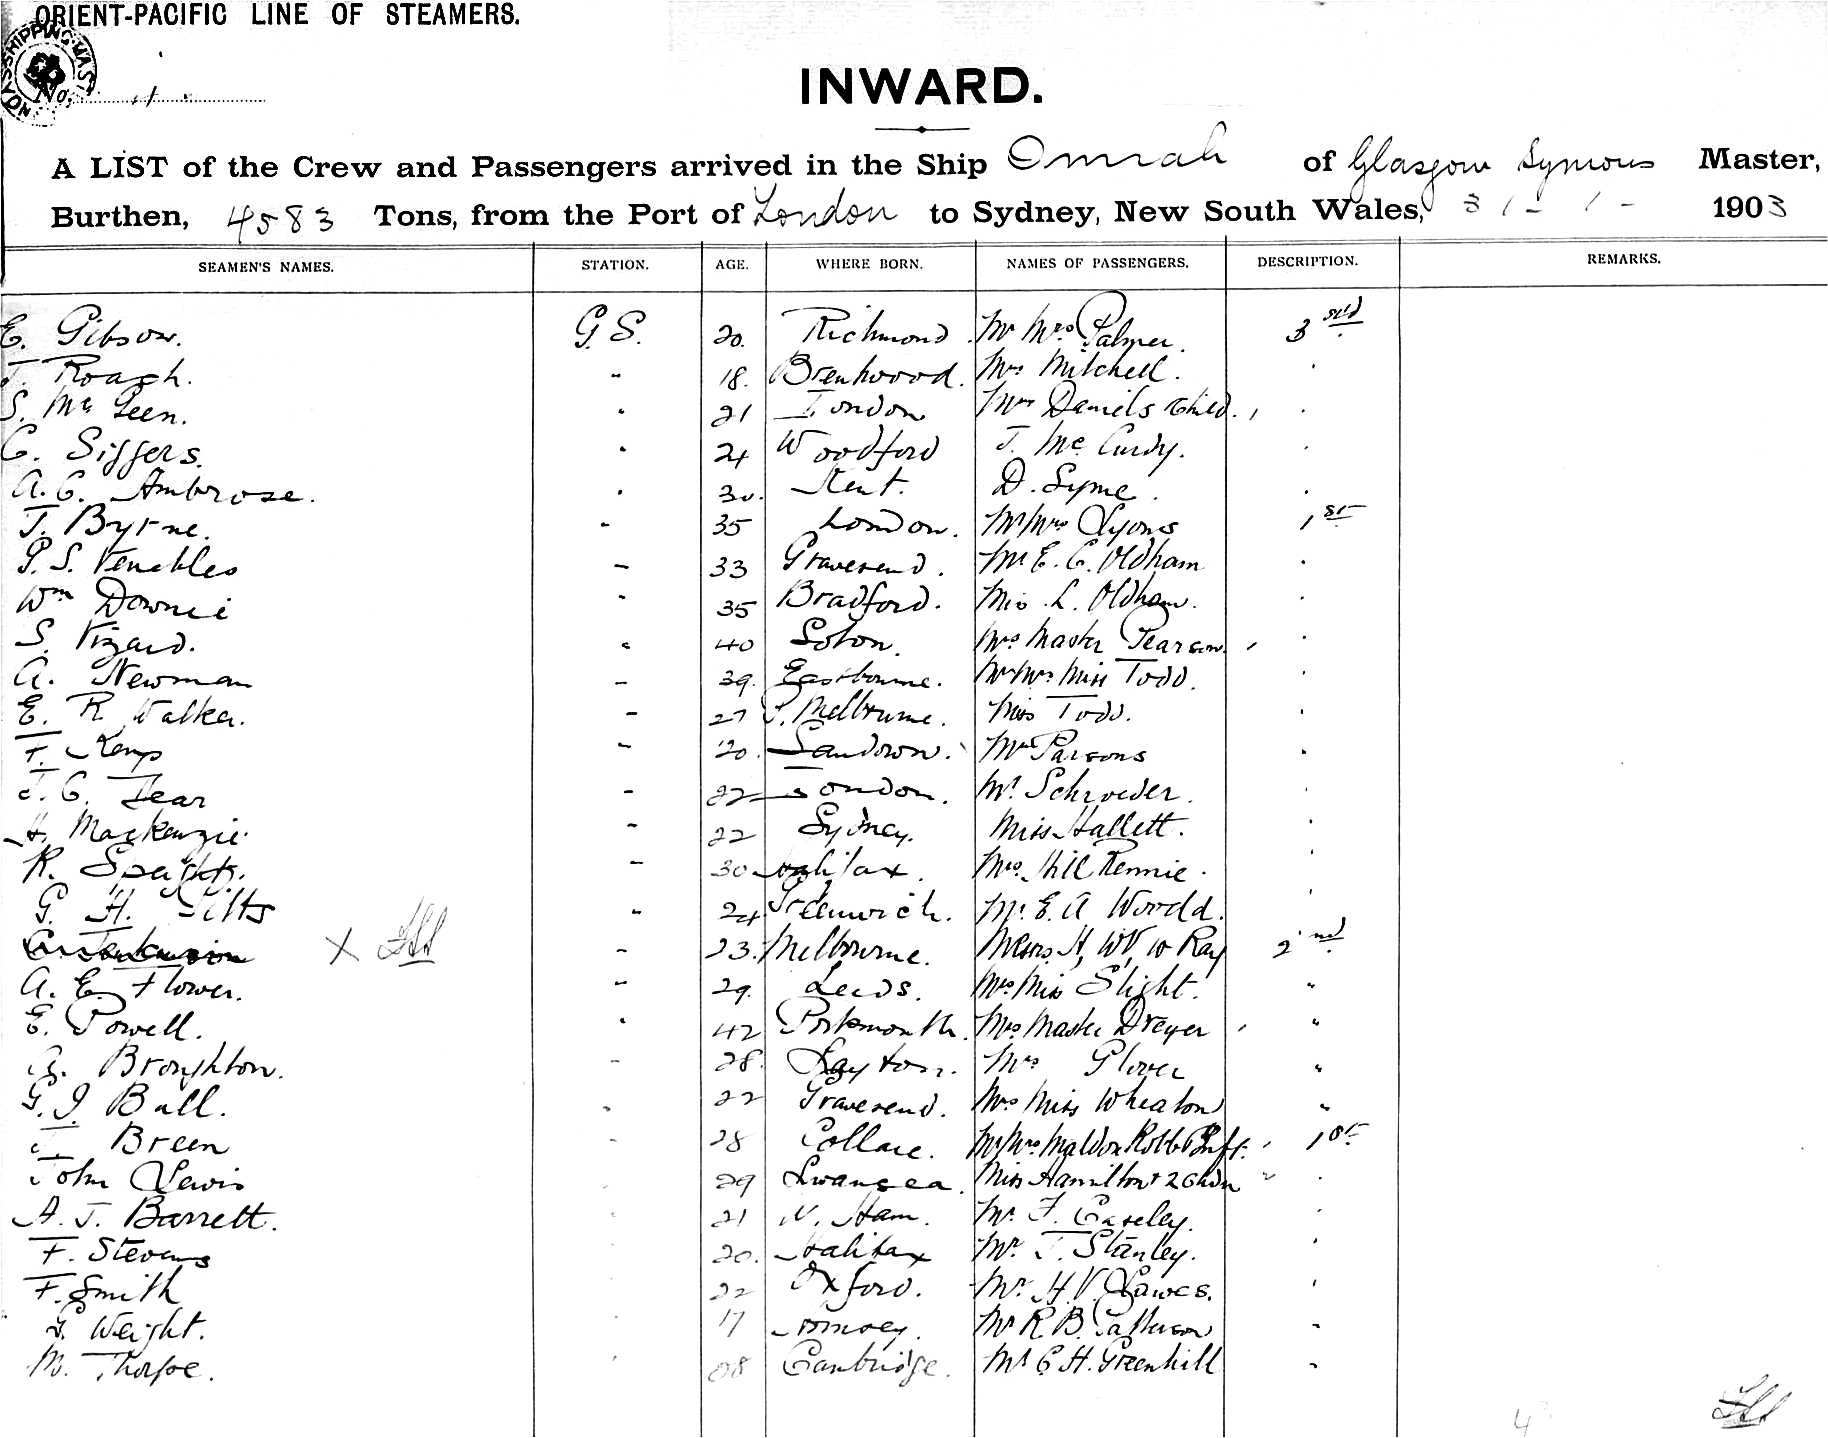 ORIENT-PACIFIC LINE OF STEAMERS.
No. 1.
INWARD.
A LIST of the Crew and Passengers arrived in the Ship Omrah of Glasgow Symons Master,
Burthen, 4583 Tons, from the Port of London to Sydney, New South Wales, 31-1- 1903
SEAMEN'S NAMES. STATION. AGE. WHERE BORN. NAMES OF PASSENGERS. DESCRIPTION. REMARKS.
E. Gibson. G.S. 20. Richmond. Mr Mrs Palmer. 3rd
T. Roach. " 18. Brentwood. Mrs Mitchell. "
S. Mc Geen. " 21 London Mrs Daniels & Child. "
C. Siggers. " 24 Woodford J. Mc Curdy. "
A. C. Ambrose. " 30. Kent. D. Syme. "
J. Byrne. " 35 London. Mr Mrs Lyons 1st
P. S. Venables " 33 Gravesend. Mr E. C. Oldham "
Wm Downie " 35 Bradford. Miss L. Oldham. "
S. Vizard. " 40 Soton. Mrs Master Pearson. "
A. Newman " 39. Eastbourne. Mr Mrs Miss Todd. "
E. R. Walker. " 27 Melbourne. Miss Todd. "
F. Kemp " 20. Sandown. Mr Parsons "
J. C. Tear " 22 London. Mr. Schroeder. "
H. Mackenzie. " 22 Sydney. Miss Hallett. "
R. Speight. " 30 Halifax. Mrs. Hill Rennie. "
G. H. Pitts " 24 Greenwich. Mr. E. A Woodd. "
X " 23. Melbourne. Messrs H, WV, W Ray 2nd
A. E. Flower. " 29. Leeds. Mrs Miss Slight. "
E. Powell. " 42 Portsmouth. Mrs Master Dreyer "
G. Broughton. " 28. Layton. Mrs Glover "
G. J. Ball. " 22 Gravesend. Mrs Miss Wheaton "
J. Breen " 28 Mr Mrs Maldon Robb & Inft. 1st
John Lewis " 29 Swansea. Miss Hamilton & 2 Chdn "
A. J. Barrett. " 21 W. Ham. Mr. F. Caseley. "
F. Stevens " 20. Halifax Mr. J. Stanley. "
F. Smith " 22 Oxford. Mr. H. V. Lawes. "
G. Weight. " 17 Romsey. Mr R B. Patterson "
M. Thorpe. " 28 Cambridge. Mr C. H. Greenhill "